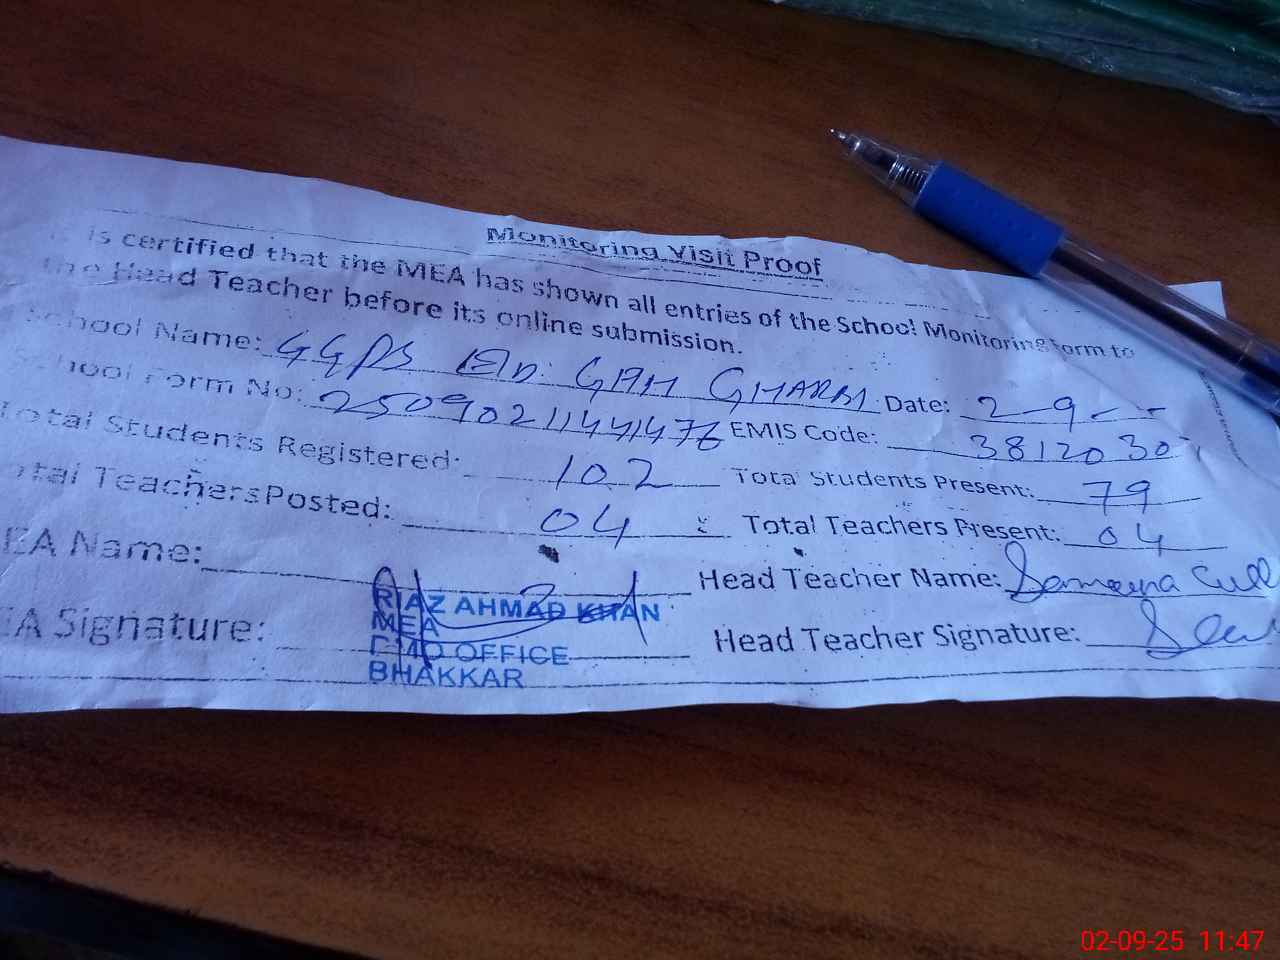 Monitoring Visit Proof
is certified that the MEA has shown all entries of the School Monitoring form to
the Head Teacher before its online submission.
School Name: GGPS EID GAH GHARBI Date: 2-9-
School Form No: 25090211441476 EMIS Code: 3812030
Total Students Registered: 102 Total Students Present: 79
Total Teachers Posted: 04 Total Teachers Present: 04
EA Name: Head Teacher Name: Sameena
RIAZ AHMAD KHAN
MEA
EA Signature: Head Teacher Signature:
DMO OFFICE
BHAKKAR
02-09-25 11:47